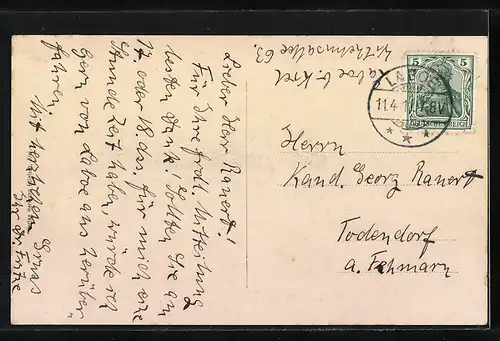 Laboe b. Kiel
Lieber Herr Ranert!
Für Ihre frdl. Mitteilung
besten Dank! Sollten Sie am
17. oder 18. ds. für mich eine
Stunde Zeit haben, würde ich
gern von Laboe aus herüber
fahren.
Mit herzlichem Gruss
Ihr
5 5
LABOE
11.4.1 7-8V
* * *
DEUTSCHES REICH
Herrn
Kand. Georg Ranert
Todendorf
a. Fehmarn